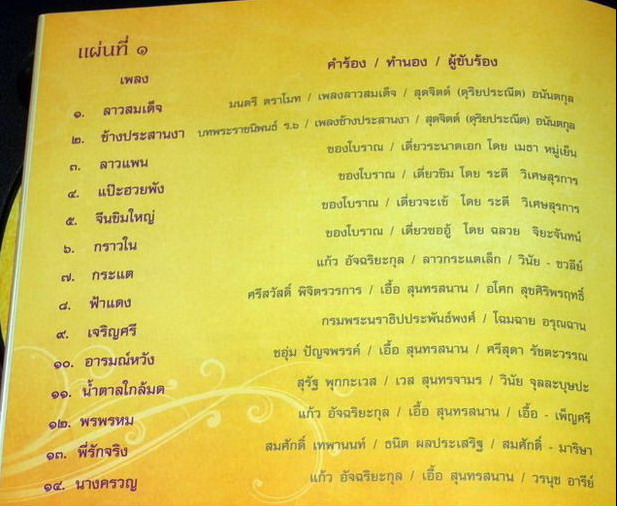 แผ่นที่ ๑
เพลง คำร้อง / ทำนอง / ผู้ขับร้อง
๑. ลาวสมเด็จ มนตรี ตราโมท / เพลงลาวสมเด็จ / สุดจิตต์ (ดุริยประณีต) อนันตกุล
๒. ช้างประสานงา บทพระราชนิพนธ์ ร.๖ / เพลงช้างประสานงา / สุดจิตต์ (ดุริยประณีต) อนันตกุล
๓. ลาวแพน ของโบราณ / เดี่ยวระนาดเอก โดย เมธา หมู่เย็น
๔. แป๊ะฮวยพัง ของโบราณ / เดี่ยวขิม โดย ระตี วิเศษสุรการ
๕. จีนขิมใหญ่ ของโบราณ / เดี่ยวจะเข้ โดย ระตี วิเศษสุรการ
๖. กราวใน ของโบราณ / เดี่ยวซออู้ โดย ฉลวย จิยะจันทน์
๗. กระแต แก้ว อัจฉริยะกุล / ลาวกระแตเล็ก / วินัย - ชวลีย์
๘. ฟ้าแดง ศรีสวัสดิ์ พิจิตรวรการ / เอื้อ สุนทรสนาน / อโศก สุขศิริพรฤทธิ์
๙. เจริญศรี กรมพระนราธิปประพันธ์พงศ์ / โฉมฉาย อรุณฉาน
๑๐. อารมณ์หวัง ชอุ่ม ปัญจพรรค์ / เอื้อ สุนทรสนาน / ศรีสุดา รัชตะวรรณ
๑๑. น้ำตาลใกล้มด สุรัฐ พุกกะเวส / เวส สุนทรจามร / วินัย จุลละบุษปะ
๑๒. พรพรหม แก้ว อัจฉริยะกุล / เอื้อ สุนทรสนาน / เอื้อ - เพ็ญศรี
๑๓. พี่รักจริง สมศักดิ์ เทพานนท์ / ธนิต ผลประเสริฐ / สมศักดิ์ - มาริษา
๑๔. นางครวญ แก้ว อัจฉริยะกุล / เอื้อ สุนทรสนาน / วรนุช อารีย์